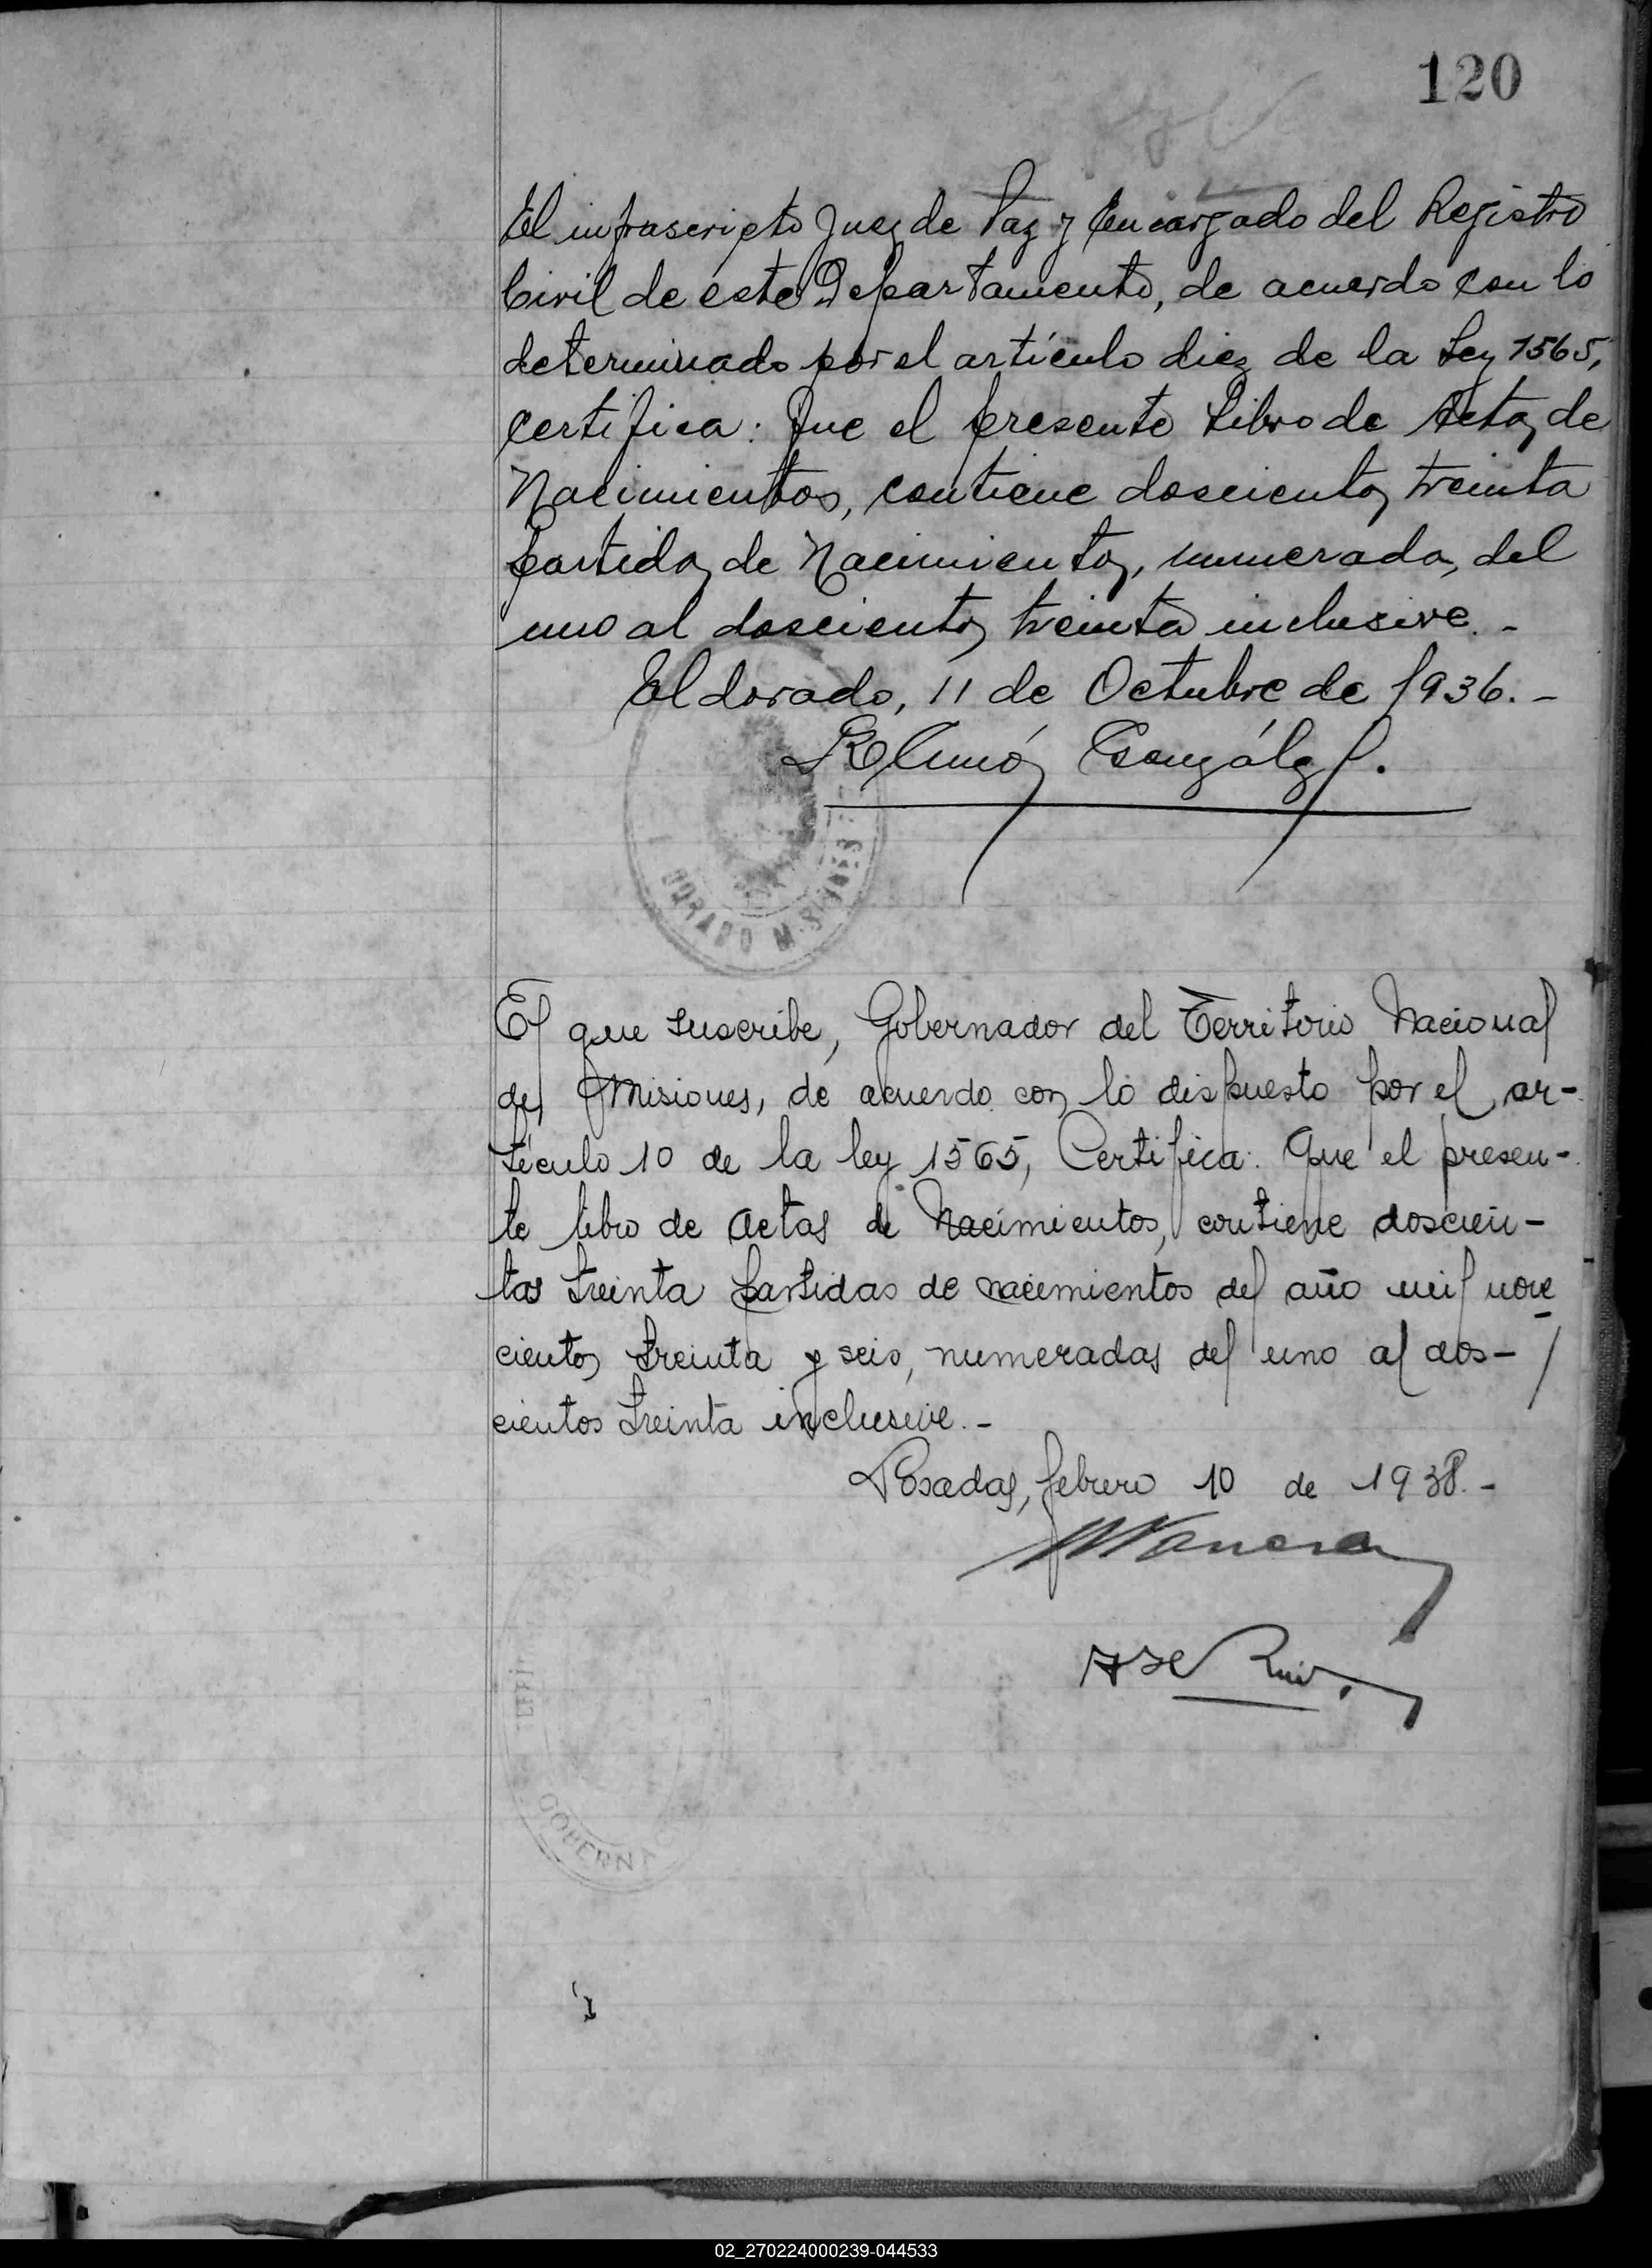 120
El infrascripto Juez de Paz y Encargado del Registro
Civil de este Departamento, de acuerdo con lo
determinado por el artículo diez de la Ley 1565,
certifica: Que el presente Libro de Actas de
Nacimientos, contiene doscientos treinta
partidas de Nacimientos, numeradas, del
uno al doscientos treinta inclusive.-
Eldorado, 11 de Octubre de 1936.-
González
DORADO MISIONES
El que suscribe, Gobernador del Territorio Nacional
de Misiones, de acuerdo con lo dispuesto por el ar-
tículo 10 de la ley 1565, Certifica: Que el presen-
te libro de actas de Nacimientos, contiene doscien-
tas treinta partidas de nacimientos del año mil nove
cientos treinta y seis, numeradas del uno al dos-/
cientos treinta inclusive.-
Posadas, febrero 10 de 1938.-
Ruiz
GOBERNA
02_270224000239-044533